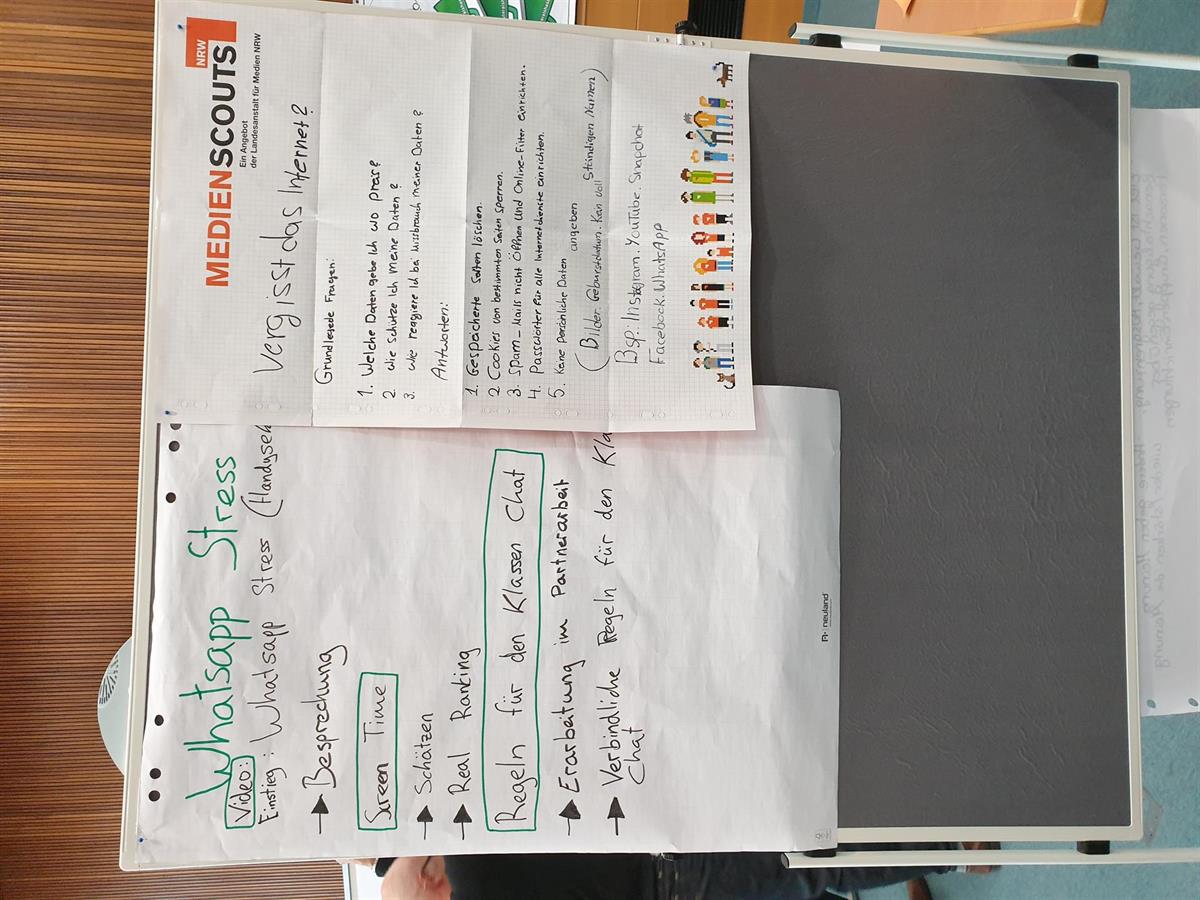 Whatsapp Stress
Video:
Einstieg: Whatsapp Stress (Handyseh
Besprechung
Screen Time
Schätzen
Real Ranking
Regeln für den Klassen Chat
Erarbeitung im Partnerarbeit
Verbindliche Regeln für den Kla
Chat
neuland
MEDIENSCOUTS NRW
Ein Angebot
der Landesanstalt für Medien NRW
vergisst das Internet?
Grundlegede Fragen:
1. Welche Daten gebe Ich wo preis?
2 wie schütze Ich meine Daten?
3. wie reagiere Ich bei Missbrauch meiner Daten?
Antworten:
1. Gespeicherte Seiten löschen.
2 Cookies von bestimmten Seiten sperren.
3. Spam-Mails nicht Öffnen Und Online-Filter einrichten.
4. Passwörter für alle Internetdienste einrichten.
5. Keine persönliche Daten angeben
(Bilder. Geburtsdatum. Kein voll Ständigen Namen)
Bsp: Instagram. YouTube. Snapchat
Facebook. WhatsApp